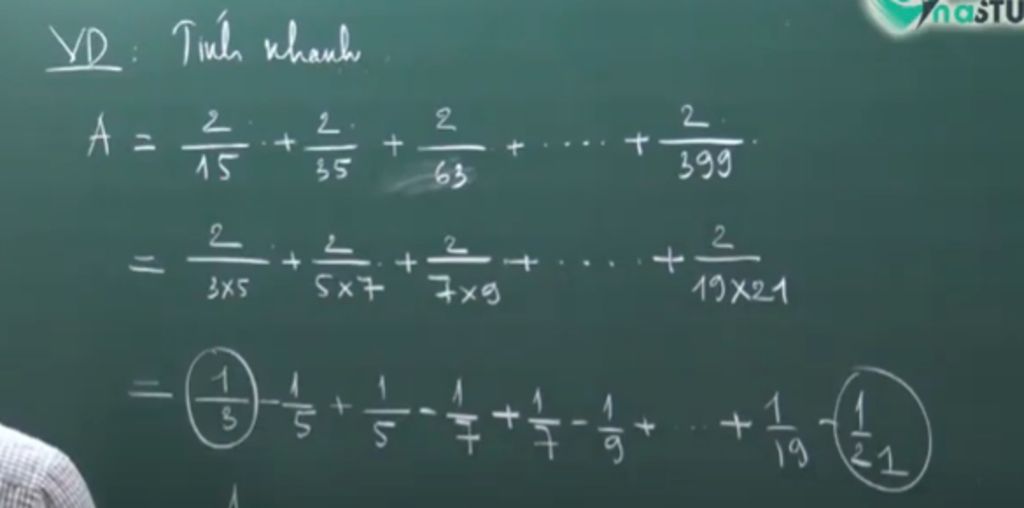 naSTU
VD: Tính nhanh
A = 2/15 + 2/35 + 2/63 + .... + 2/399
= 2/3x5 + 2/5x7 + 2/7x9 + .... + 2/19x21
= 1/3 - 1/5 + 1/5 - 1/7 + 1/7 - 1/9 + ... + 1/19 - 1/21